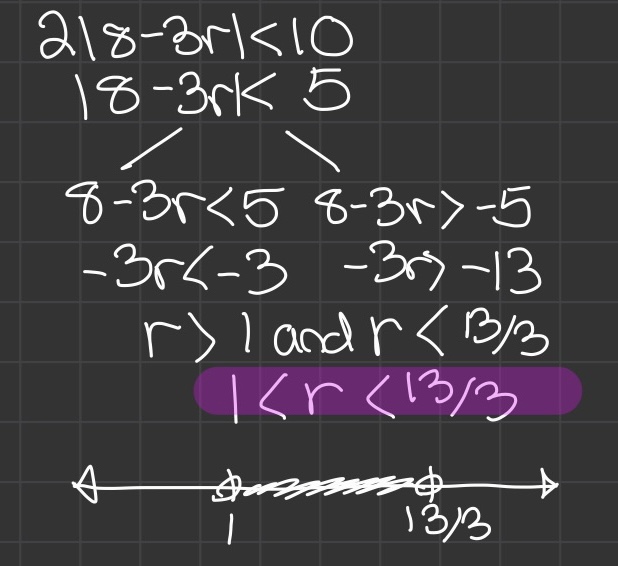 2|8-3r|<10
|8-3r|< 5
8-3r<5 8-3r>-5
-3r<-3 -3r>-13
r>1 and r<13/3
1<r<13/3
1 13/3